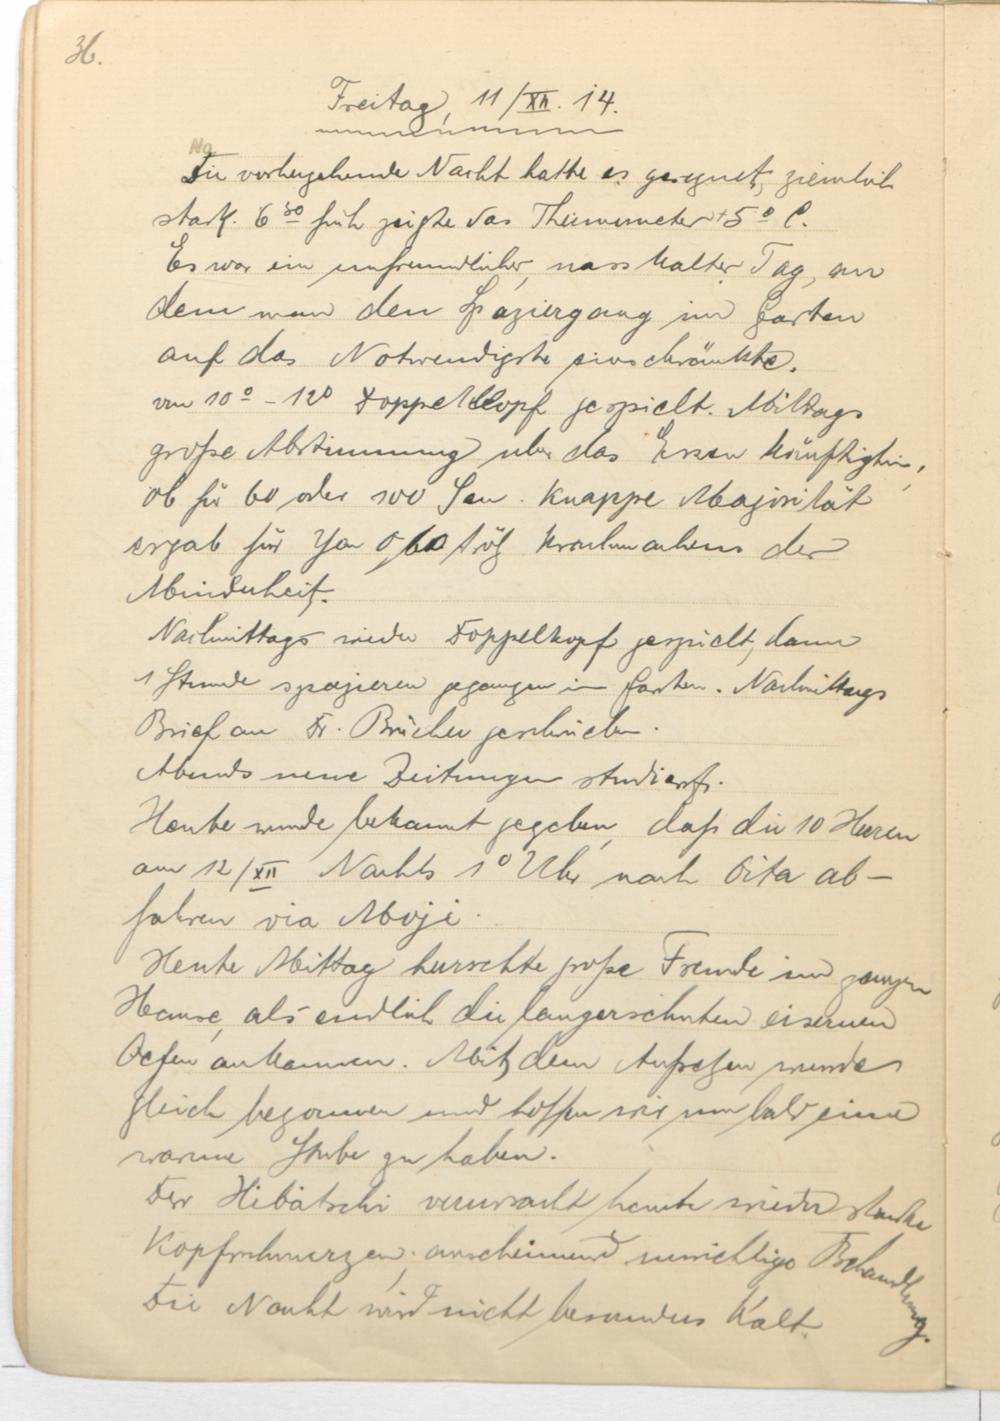 36.
Freitag, 11/XII. 14.
Die vorhergehende Nacht hatte es geregnet, ziemlich
stark. 6 30 früh zeigte das Thermometer +5° C.
Es war ein unfreundlicher, nass kalter Tag, an
dem man den Spaziergang im Garten
auf das Notwendigste einschränkte.
von 10° - 12° Doppelkopf gespielt. Mittags
große Abstimmung über das Essen künftighin,
ob für 60 oder 100 Sen. Knappe Majorität
ergab für Yen 0,60 trotz Krachmachens der
Minderheit.
Nachmittags wieder Doppelkopf gespielt, dann
1 Stunde spazieren gegangen im Garten. Nachmittags
Brief an Fr. Brücher geschrieben.
Abends neue Zeitungen studiert.
Heute wurde bekannt gegeben, daß die 10 Herren
am 12/XII Nachts 1° Uhr nach Oita ab-
fahren via Moji.
Heute Mittag herrschte große Freude im ganzen
Hause, als endlich die langersehnten eisernen
Oefen ankamen. Mit dem Aufsetzen wurde
gleich begonnen und hoffen wir nun bald eine
warme Stube zu haben.
Der Hibatschi verursacht heute wieder starke
Kopfschmerzen, anscheinend unrichtige Behandlung.
Die Nacht wird nicht besonders kalt.